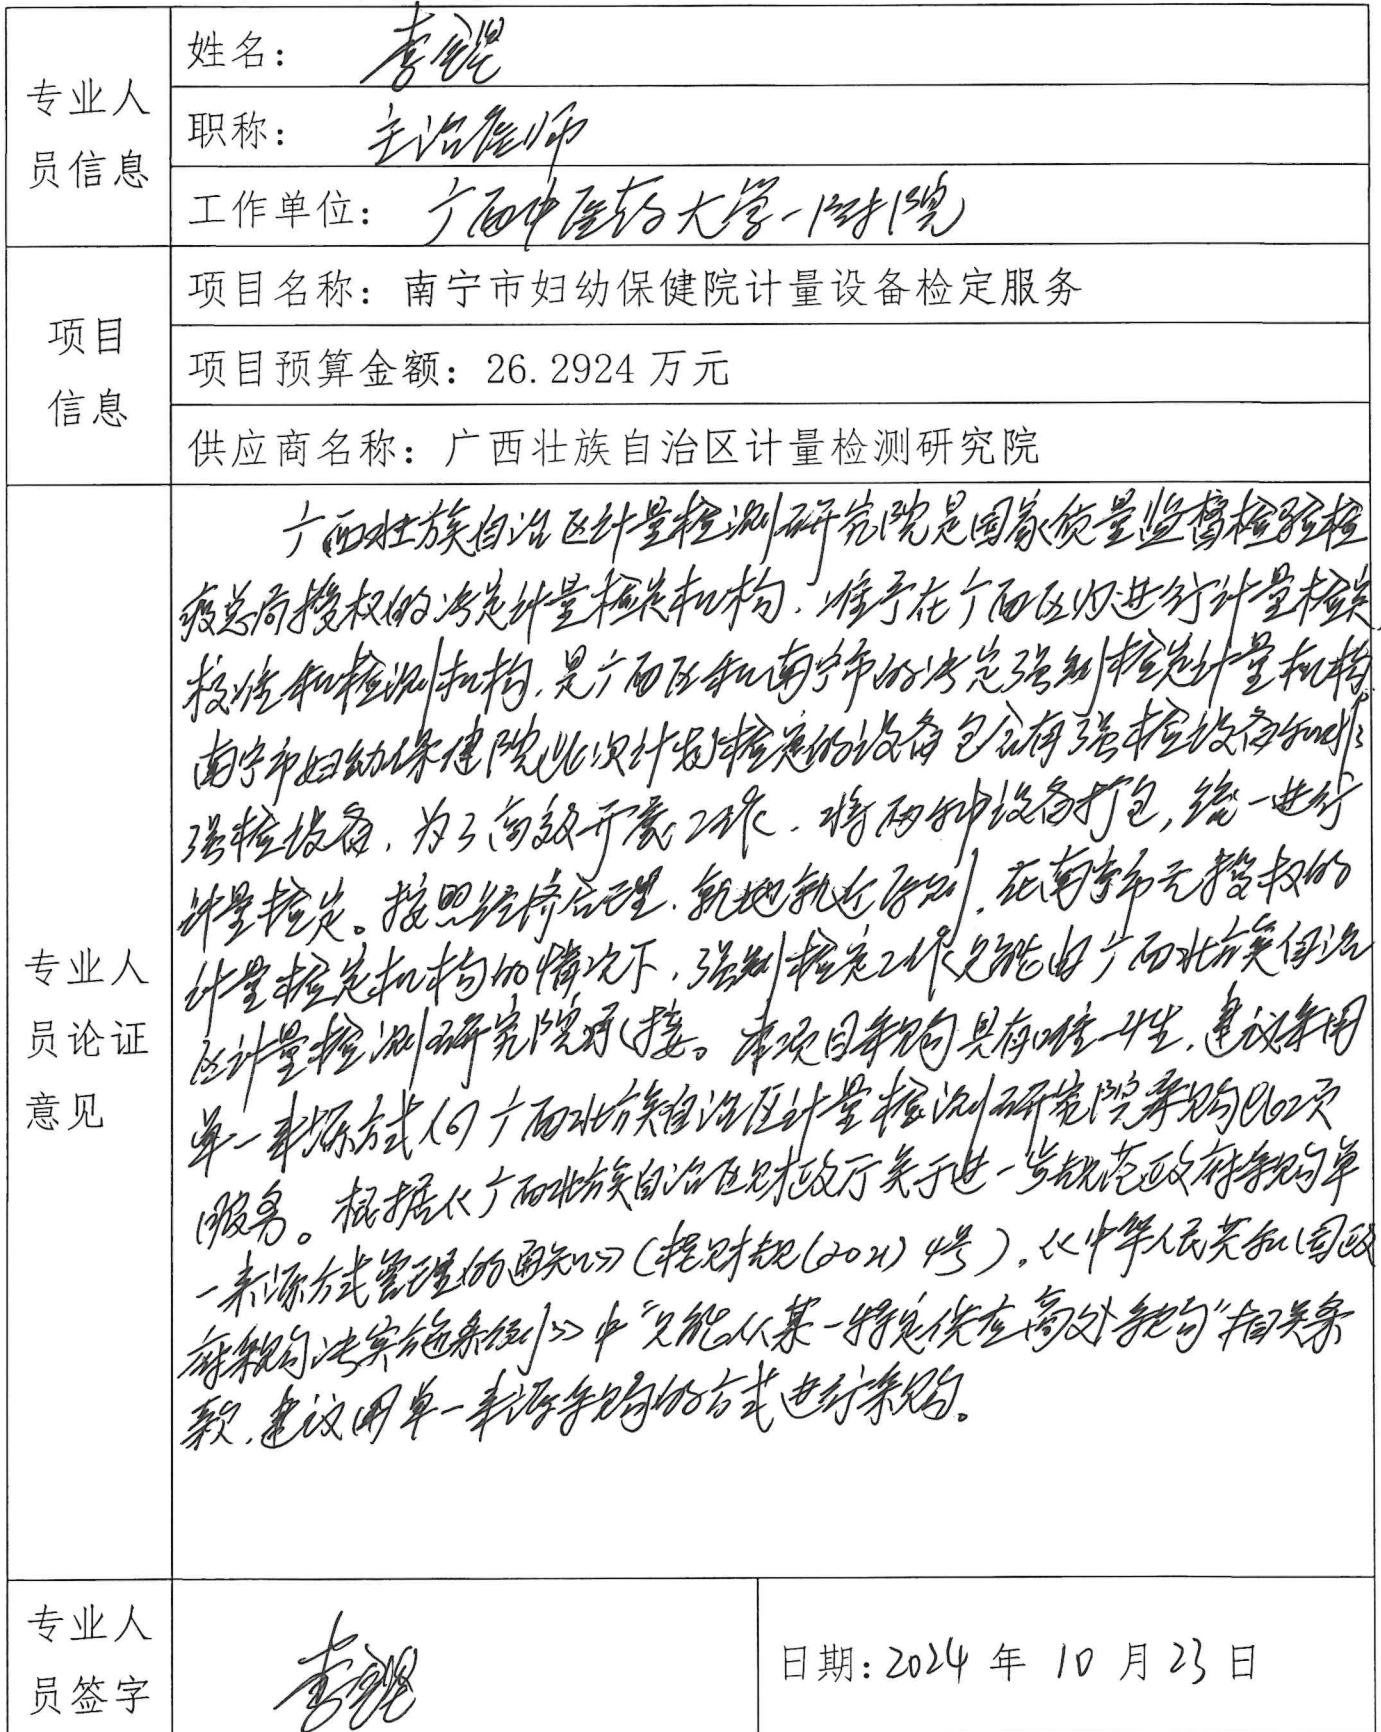 专业人
员信息
姓名：李
职称：主治医师
工作单位：广西中医药大学一附院
项目
信息
项目名称：南宁市妇幼保健院计量设备检定服务
项目预算金额：26.2924 万元
供应商名称：广西壮族自治区计量检测研究院
专业人
员论证
意见
广西壮族自治区计量检测研究院是国家质量监督检验检
疫总局授权的法定计量检定机构，准予在广西区内进行计量检定、
校准和检测机构，是广西区和南宁市的法定强制检定计量机构
南宁市妇幼保健院此次计划检定的设备包含有强检设备和非
强检设备，为了高效开展工作，将两种设备打包，统一进行
计量检定。按照经济合理、就地就近原则，在南宁市无授权的
计量检定机构的情况下，强制检定工作只能由广西壮族自治
区计量检测研究院承接。本项目采购具有唯一性，建议采用
单一来源方式向广西壮族自治区计量检测研究院采购此项
服务。根据《广西壮族自治区财政厅关于进一步规范政府采购单
一来源方式管理的通知》（桂财规（2021）4号），《中华人民共和国政
府采购法实施条例》中“只能从某一特定供应商处采购”相关条
款，建议用单一来源采购的方式进行采购。
专业人
员签字
李
日期：2024 年 10 月 23 日